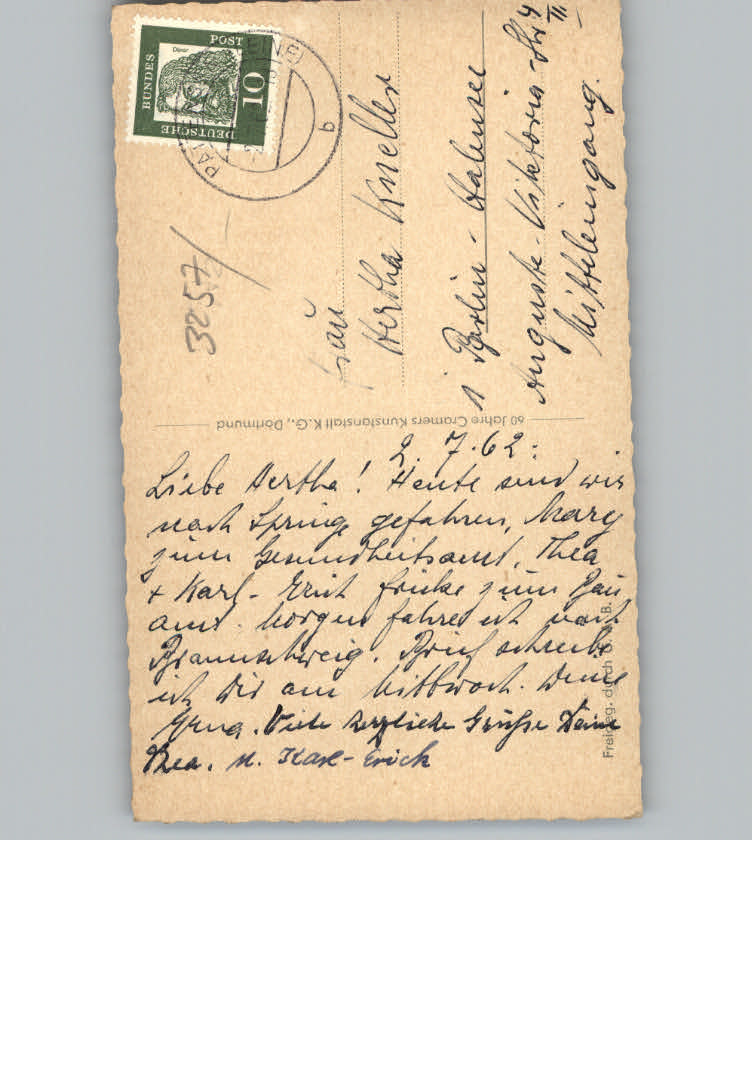 2. 7. 62.
Liebe Hertha! Heute sind wir
nach Springe gefahren, Mary
zum Gesundheitsamt, Thea
+ Karl-Erich Fricke zum Bau
amt. Morgen fahre ich nach
Braunschweig. Brief schreibe
ich Dir am Mittwoch. Deine
Erna. Viele herzliche Grüße Deine
Thea. u. Karl-Erich
60 Jahre Cramers Kunstanstalt K.G., Dortmund
Freigeg. durch
Frau
Hertha Kneller
1 Berlin-Halensee
Auguste-Viktoria-Str 4
II
Mitteleingang.
3257/-
DEUTSCHE
BUNDES
POST
10
Dürer
b